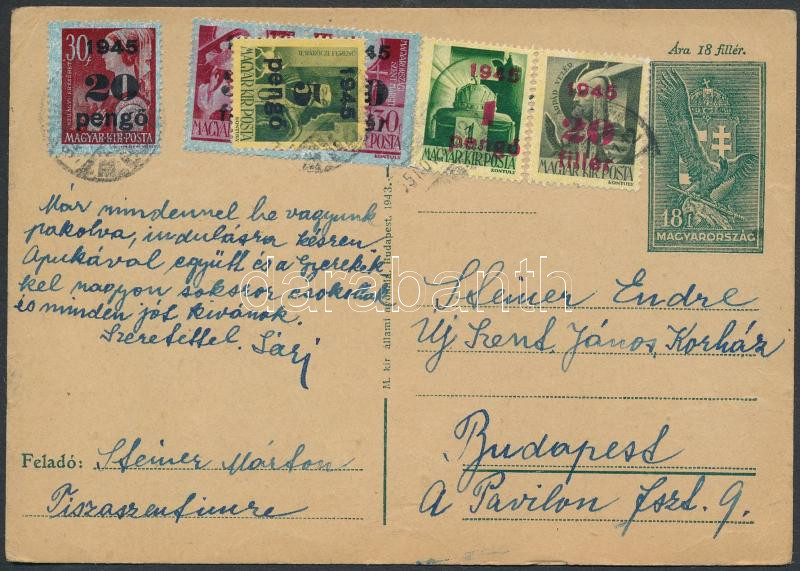 Ára 18 fillér.
30f
1945
20
pengő
MAGYAR·KIR·POSTA
1945
5
pengő
MAGYAR·KIR·POSTA
II.RÁKÓCZI FERENC
1945
1
pengő
MAGYAR KIR POSTA
1945
20
fillér
MAGYAR·KIR·POSTA
18f
MAGYARORSZÁG
Már mindennel be vagyunk
pakolva, indulásra készen
Apukával együtt és a Gyerekek
kel nagyon sokszor csókolunk
és minden jót kivánok.
Szeretettel. Sári
Feladó: Steiner Márton
Tiszaszentimre
M. kir. állami nyomda, Budapest, 1943.
Steiner Endre
Uj Szent János Korház
Budapest
A Pavilon fszt. 9.
darabanth